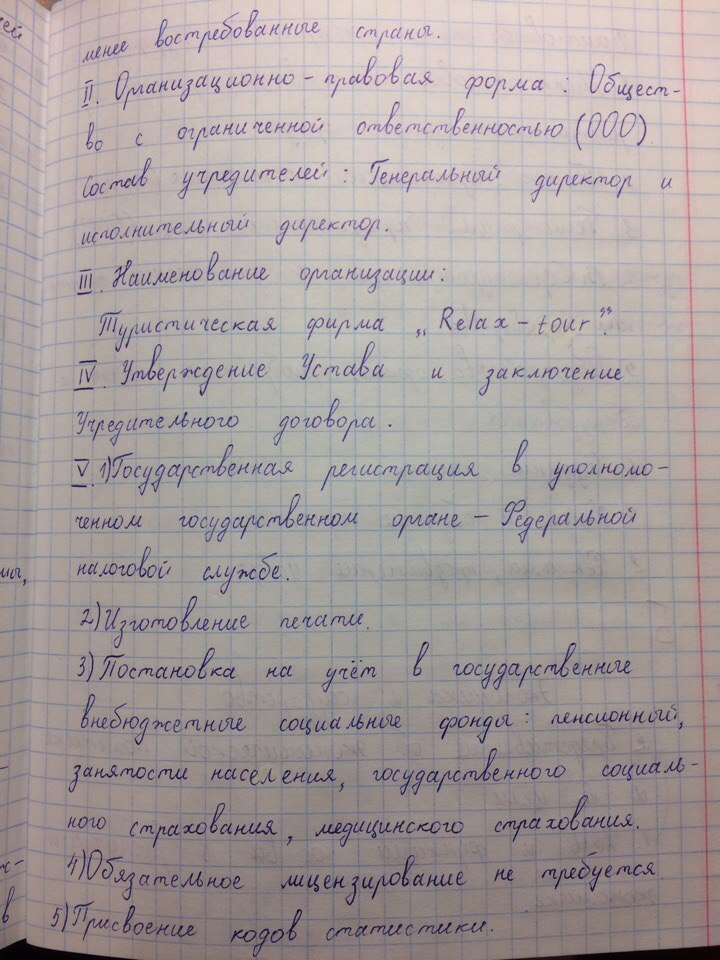 менее востребованные страны.
II. Организационно-правовая форма: Общест-
во с ограниченной ответственностью (ООО)
Состав учредителей: Генеральный директор и
исполнительный директор.
III. Наименование организации:
Туристическая фирма „Relax-tour".
IV. Утверждение Устава и заключение
Учредительного договора.
V. 1) Государственная регистрация в уполномо-
ченном государственном органе – Федеральной
налоговой службе.
2) Изготовление печати.
3) Постановка на учёт в государственные
внебюджетные социальные фонды: пенсионный,
занятости населения, государственного социаль-
ного страхования, медицинского страхования.
4) Обязательное лицензирование не требуется.
5) Присвоение кодов статистики.